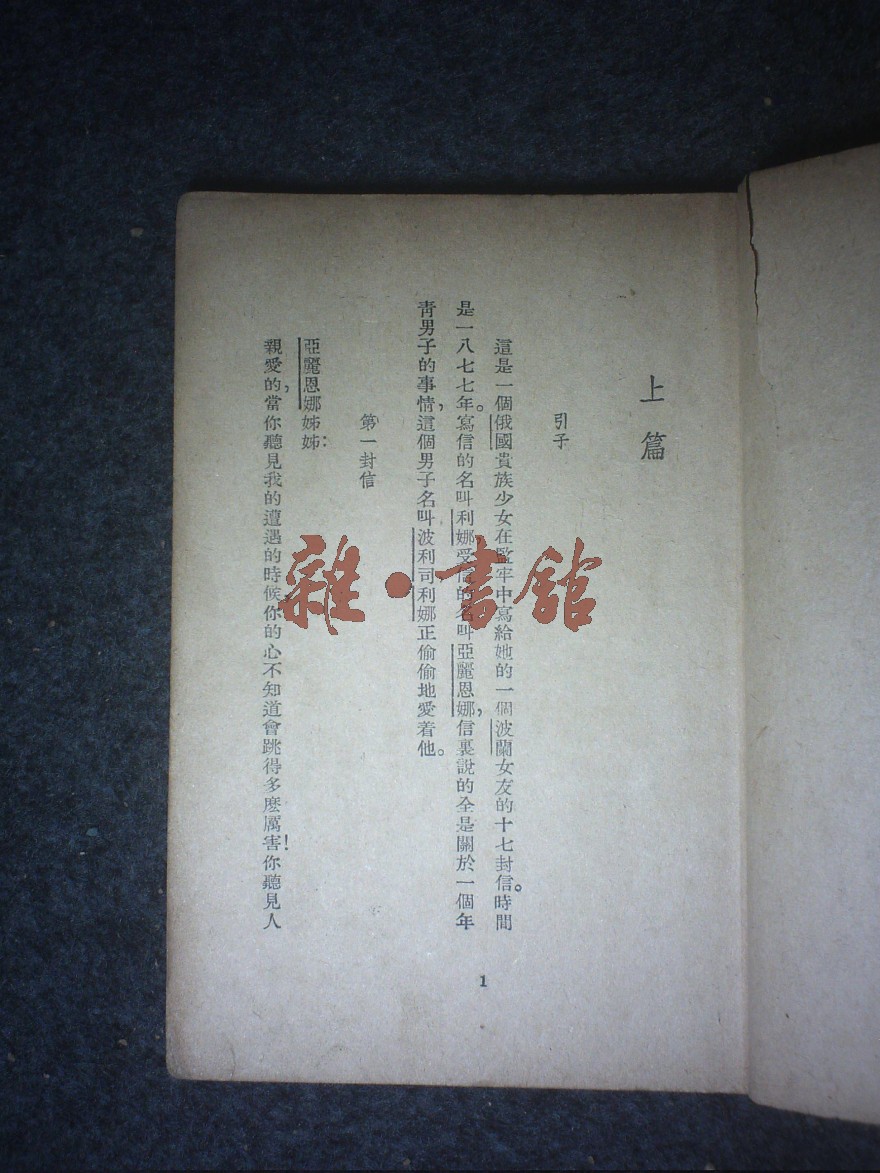 上篇
引子
這是一個俄國貴族少女在監牢中寫給她的一個波蘭女友的十七封信。時間
是一八七七年。寫信的名叫利娜受信的名叫亞麗恩娜,信裏說的全是關於一個年
靑男子的事情,這個男子名叫波利司利娜正偷偷地愛着他。
第一封信
亞麗恩娜姊姊:
親愛的,當你聽見我的遭遇的時候你的心不知道會跳得多麽厲害!你聽見人
1
雜·書館